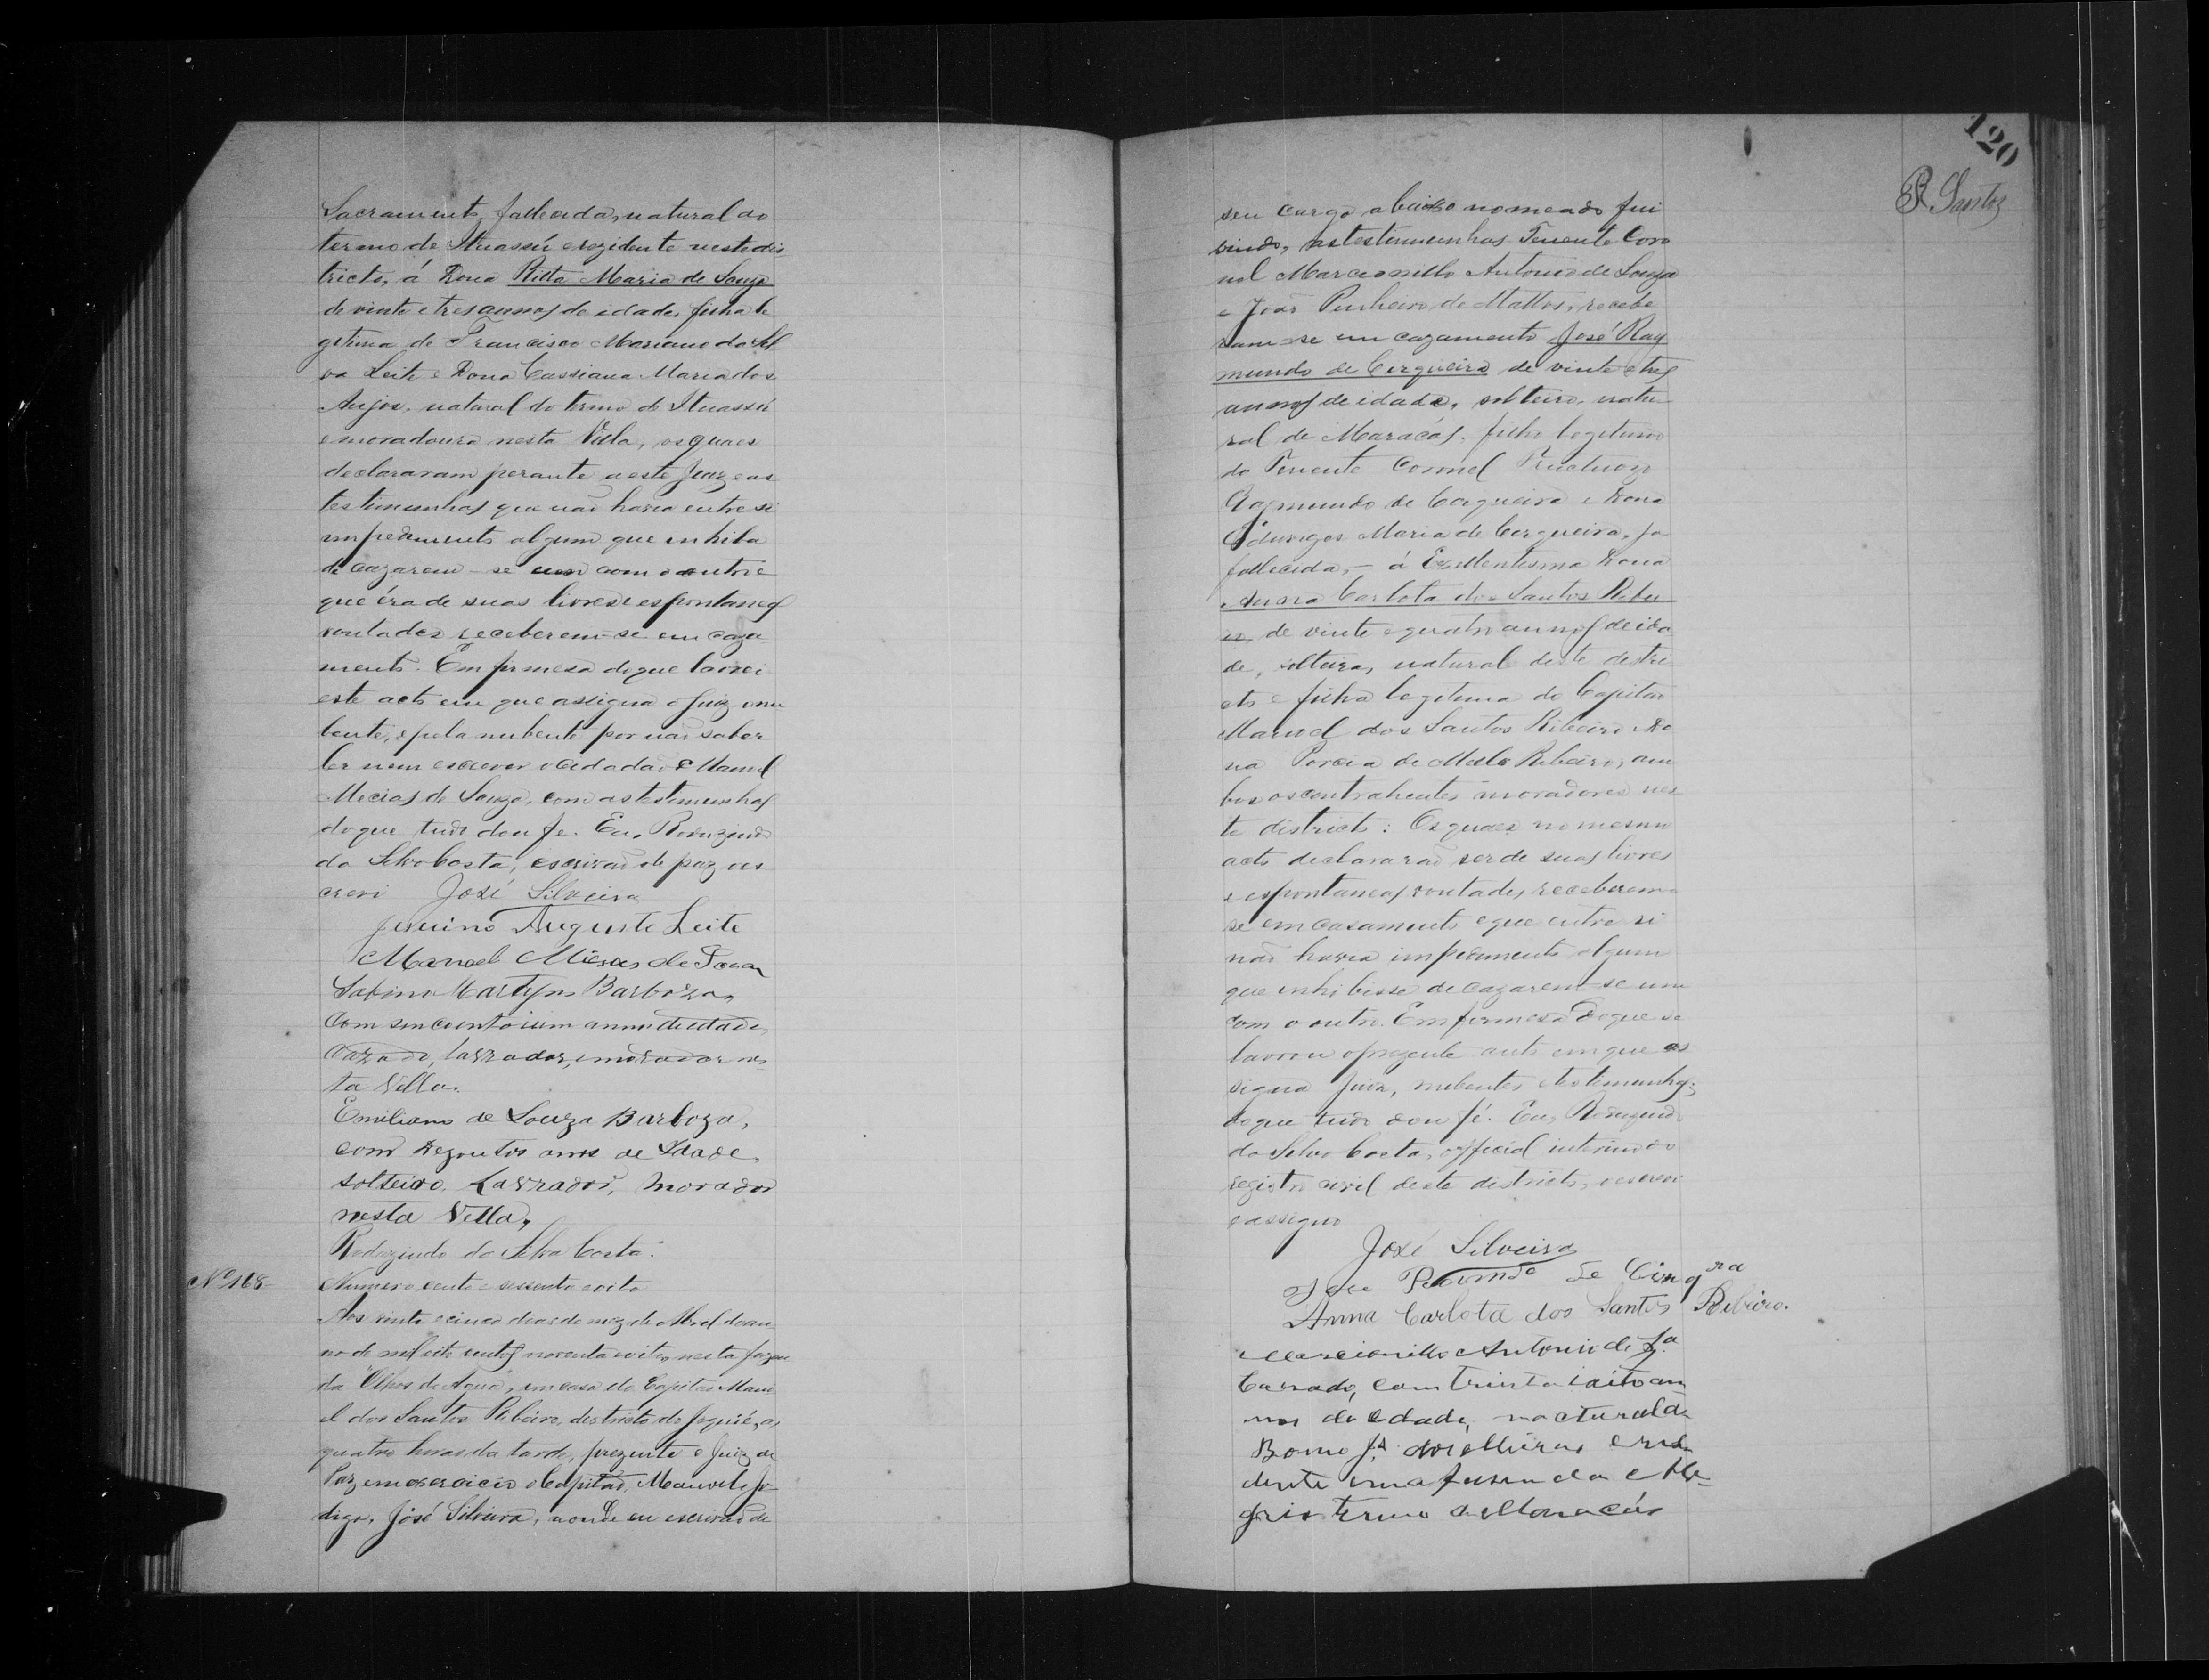 Sacramento, fallecida, natural do
termo de Ituassú e rezidente neste dis
tricto, á Dona Ritta Maria de Souza
de vinte e tres annos de idade, filha le
gitima de Francisco Mariano da Sil
va Leite e Dona Cassiana Maria dos
Anjos, natural do termo de Ituassú
e moradoura nesta Villa, os quaes
declararam perante a este Juiz e as
testimunhas que não havia entre si
impedimento algum que inhiba
de cazarem-se um com o outro e
que éra de suas livres e espontaneas
vontades receberem-se em caza
mento. Em firmesa do que lavrei
este acto em que assigna o Juiz, o nu
bente, e pela nubente por não saber
ler nem escrever o cidadão Manoel
Mecias de Souza, com as testemunhas
do que tudo dou fe. Eu, Roduzindo
da Silva Costa, escrivão de paz o es
crevi José Silveira
Juvino Augusto Leite
Manoel Micias de Souza
Sabino Martyns Barboza,
Com sincoenta e um anno de idade,
Cazado, lavrador, e morador nes
ta Villa.
Emiliano de Souza Barboza,
com Dezoutos anos de Idade,
solteiro, Lavrador, morador
nesta Villa,
Roduzindo da Silva Costa.
Nº 168 Numero cento e sessenta e oito
Aos vinte e cinco dias do mez de Abril do an
no de mil oito centos noventa e oito, nesta fazen
da Olhos de Agua, em casa do Capitão Mano
el dos Santos Ribeiro, districto de Jequié, as
quatro horas da tarde, prezente o Juiz de
Paz em exercicio o Capitão, Manoel, ju
digo, José Silveira, aonde eu escrivão de
120
R. Santos
seu cargo abaixo nomeado fui
vindo, as testemunhas Tenente Coro
nel Marcionillo Antonio de Souza
e João Pinheiro de Mattos, recebe
ram-se em cazamento José Ray
mundo de Cerqueira de vinte e tres
annos de idade, solteiro, natu
ral de Maracás, filho legitimo
do Tenente Coronel Fructuozo
Raymundo de Cerqueira e Dona
Eduviges Maria de Cerqueira, ja
fallecida, - á Excellentissima Dona
Anna Carlota dos Santos Ribei
ro, de vinte e quatro annos de ida
de, solteira, natural deste distri
cto e filha legitima do Capitão
Manoel dos Santos Ribeiro e Do
na Porcia de Mello Ribeiro, am
bos os contrahentes moradores nes
te districto: Os quaes no mesmo
acto declararão ser de suas livres
e espontaneas vontades receberem
se em casamento e que entre si
não havia impedimento algum
que inhibisse de cazarem-se um
com o outro. Em firmesa do que se
lavrou o prezente auto em que as
signa Juiz, nubentes e testemunhas;
do que tudo dou fé. Eu, Roduzindo
da Silva Costa, official interino do
registro civil deste districto, o escrevi
e assigno
José Silveira
José Raimdo de Cirqra
Anna Carlota dos Santos Ribeiro.
Marcionillo Antonio de Sza
Cazado, com trinta i aito an
nos de edade, nactural de
Bom Js dos Meiras e resi
dente em a fasenda Ale
gria termo de Maracás